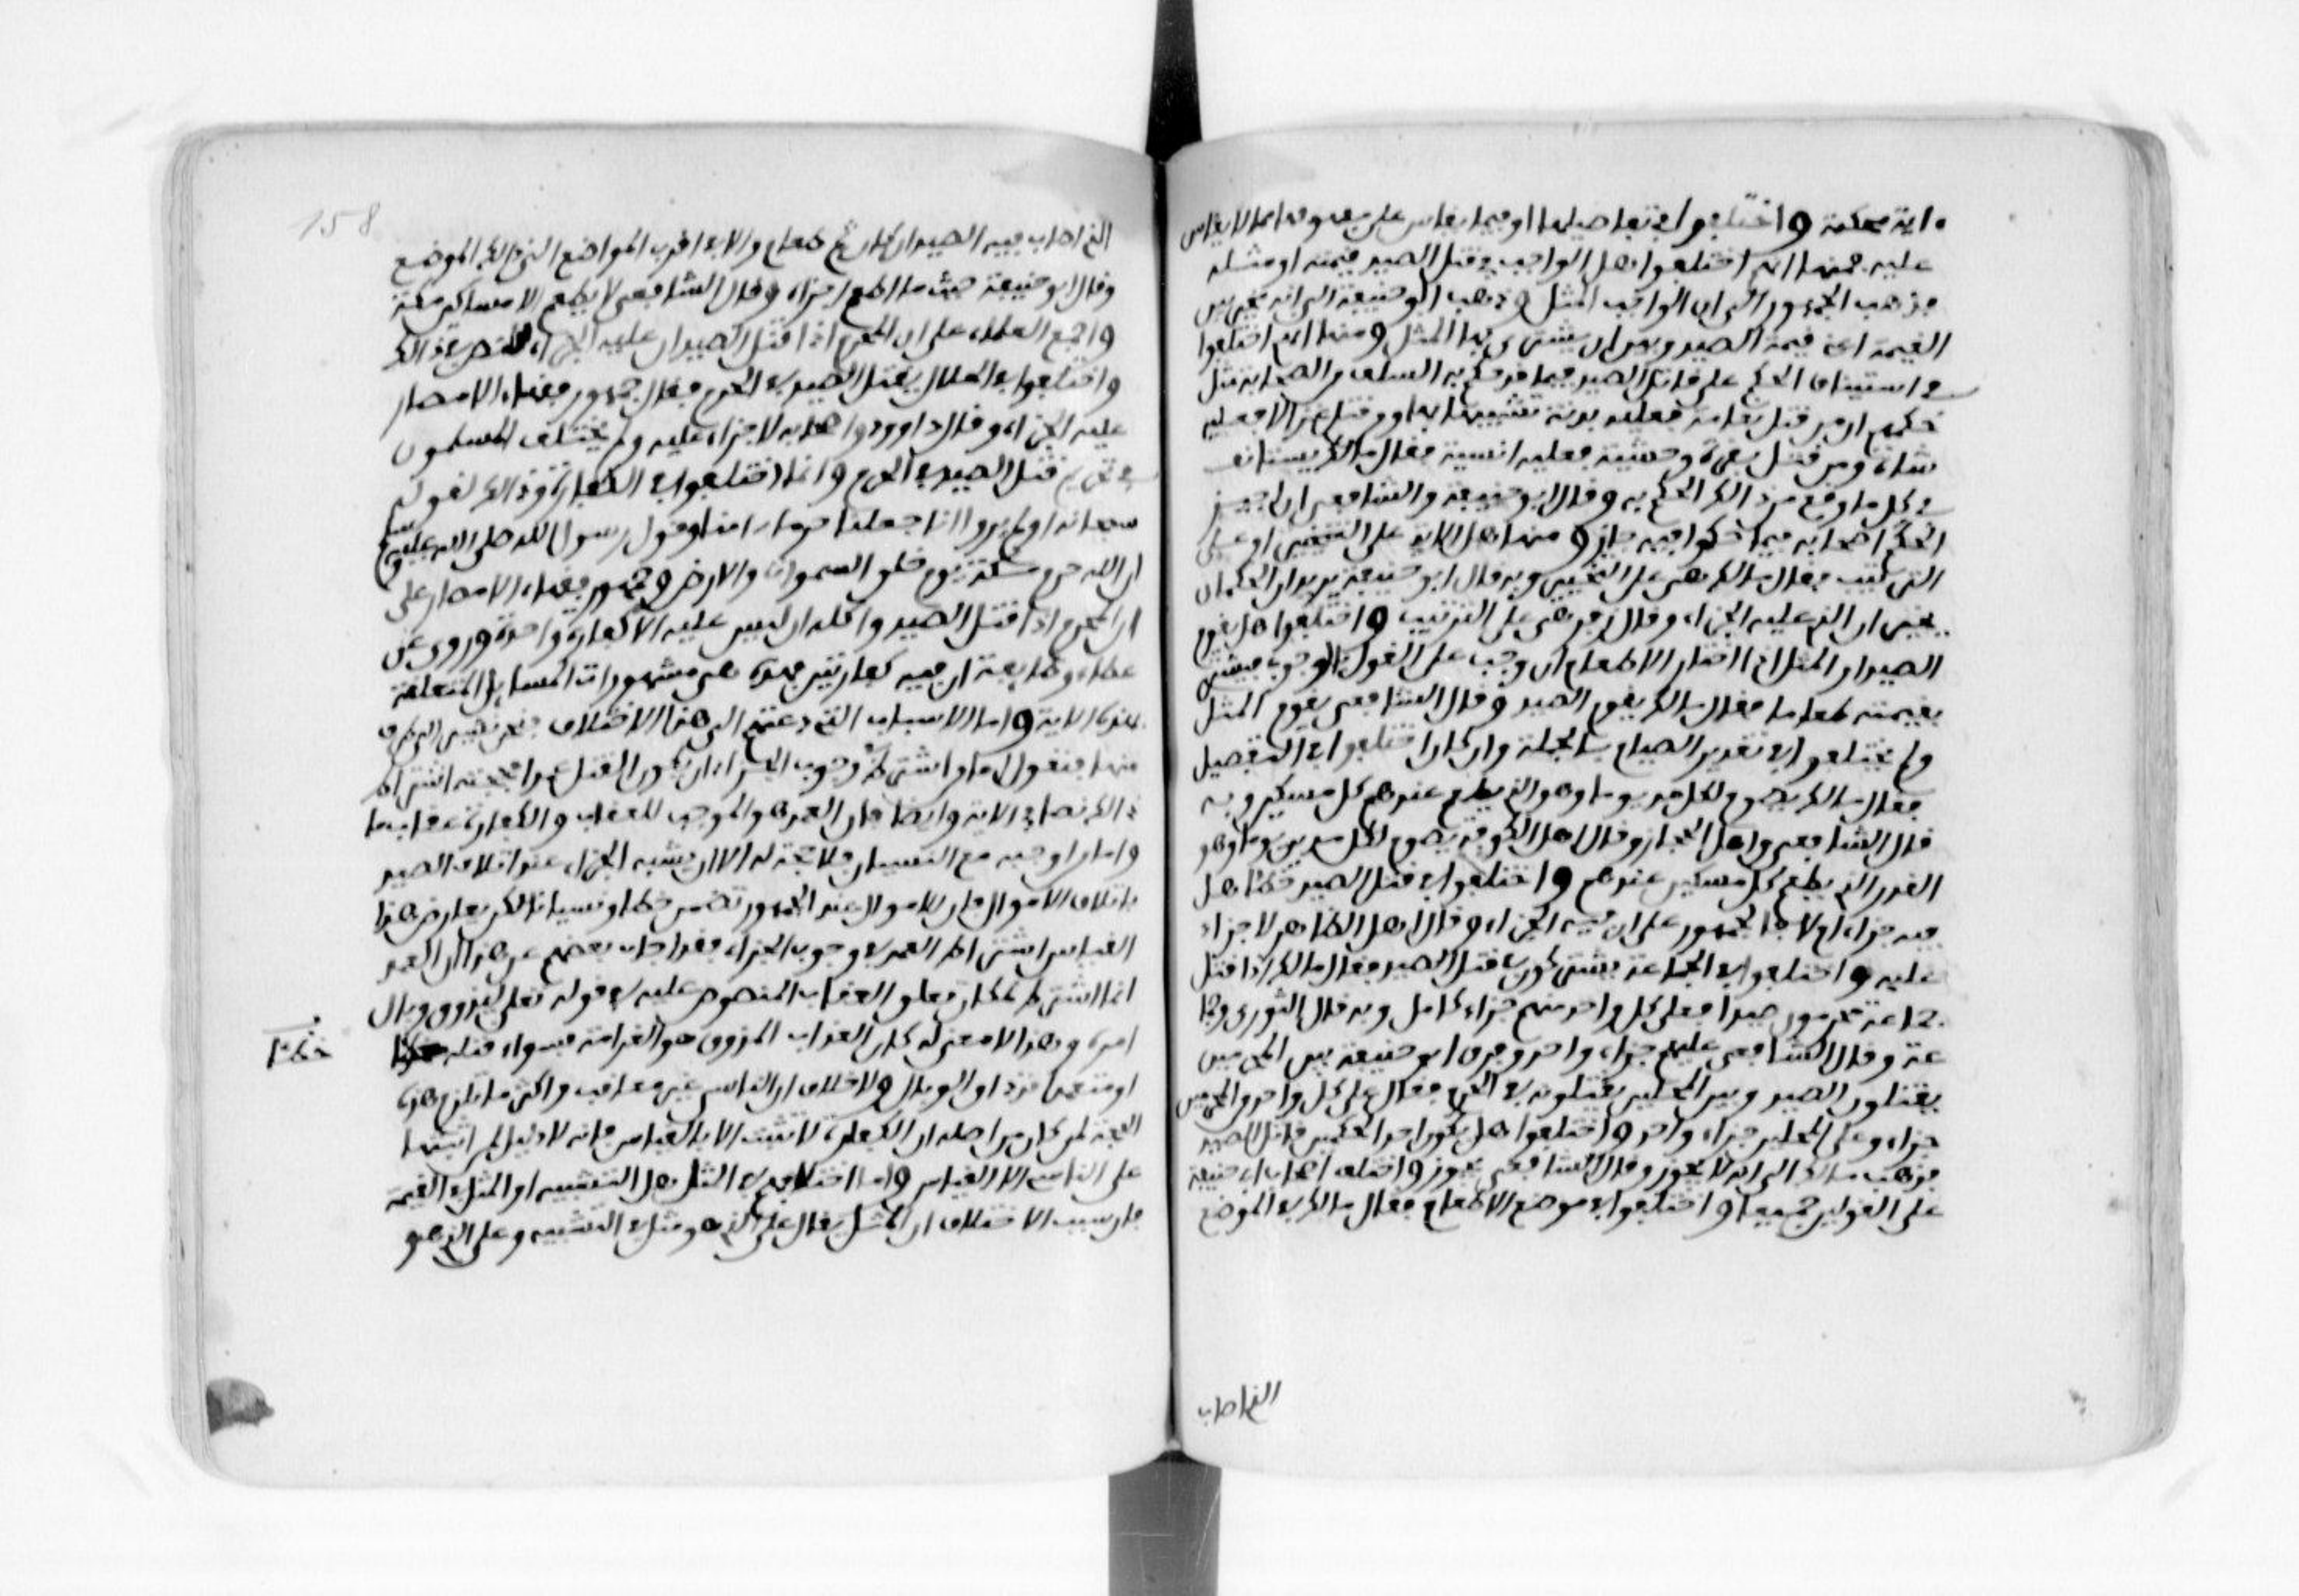 ءاية محكمة واختلفوا في تفاصيلها وفيما يقاس على مفهومها مما لا يقاس
عليه فمنها انهم اختلفوا هل الواجب في قتل الصيد قيمته او مثله
فذهب الجمهور الى ان الواجب المثل وذهب ابو حنيفة الى انه مخير بين
القيمة اعني قيمة الصيد وبين ان يشتري بها المثل ومنها انهم اختلفوا
في استيناف الحكم على قاتل الصيد فيما قد حكم به السلف والصحابة مثل
حكمهم ان من قتل نعامة فعليه بدنة تشبيها بها ومن قتل غزالا فعليه
شاة ومن قتل بقرة وحشية فعليه انسية فقال مالك يستانف
في كل ما وقع من ذالك الحكم به وقال ابو حنيفة والشافعي ان اجتزا
الحكم الصحابة فيما حكموا فيه جاز ومنها هل الاية على التخيير او على
الترتيب فقال مالك هي على التخيير وبه قال ابو حنيفة يريد ان الحكمان
يخيران الذي عليه الجزاء وقال زفر هي على الترتيب واختلفوا هل يقوم
الصيد او المثل اذا اختار الاطعام ان وجب على القول بالوجوب فيشتري
بقيمته طعاما فقال مالك يقوم الصيد وقال الشافعي يقوم المثل
ولم يختلفوا في تقدير الصيام بالجملة وان كانوا اختلفوا في التفصيل
فقال مالك يصوم لكل مد يوما وهو الذي يطعم عندهم كل مسكين وبه
قال الشافعي واهل الحجاز وقال اهل الكوفة يصوم لكل مدين يوما وهو
القدر الذي يطعم كل مسكين عندهم واختلفوا في قتل الصيد خطا هل
فيه جزاء ام لا فالجمهور على ان فيه الجزاء وقال اهل الظاهر لا جزاء
عليه واختلفوا في الجماعة يشتركون في قتل الصيد فقال مالك اذا قتل
جماعة محرمون صيدا فعلى كل واحد منهم جزاء كامل وبه قال الثوري وجما
عة وقال الشافعي عليهم جزاء واحد وفرق ابو حنيفة بين المحرمين
يقتلون الصيد وبين المحلين يقتلونه في الحرم فقال على كل واحد من المحرمين
جزاء وعلى المحلين جزاء واحد واختلفوا هل يكون احد الحكمين قاتل الصيد
فذهب مالك الى انه لا يجوز وقال الشافعي يجوز واختلف اصحاب ابي حنيفة
على القولين جميعا واختلفوا في موضع الاطعام فقال مالك في الموضع
الذي اصاب
158
الذي اصاب فيه الصيد ان كان ثم طعام والا ففي اقرب المواضع الى ذالك الموضع
وقال ابو حنيفة حيث ما اطعم اجزاه وقال الشافعي لا يطعم الا مساكين مكة
واجمع العلماء على ان المحرم اذا قتل الصيد ان عليه الجزاء للنص في ذالك
واختلفوا في الحلال يقتل الصيد في الحرم فقال جمهور فقهاء الامصار
عليه الجزاء وقال داوود واصحابه لا جزاء عليه ولم يختلف المسلمون
في تحريم قتل الصيد في الحرم وانما اختلفوا في الكفارة وذالك لقوله
سبحانه اولم يروا انا جعلنا حرما ءامنا وقول رسول الله صلى الله عليه وسلم
ان الله حرم مكة يوم خلق السموات والارض وجمهور فقهاء الامصار على
ان المحرم اذا قتل الصيد واكله ان ليس عليه الا كفارة واحدة وروي عن
عطاء وطايفة ان فيه كفارتين فهذه هي مشهورات المسايل المتعلقة
بهذه الاية واما الاسباب التي دعتهم الى هذا الاختلاف فنحن نشير الى طرف
منها فنقول اما من اشترط في وجوب الجزاء ان يكون القتل عمدا فحجته اشتراط
ذالك نصا في الاية وايضا فان العمد هو الموجب للعقاب والكفارة عقاب ما
واما من اوجبه مع النسيان فلا حجة له الا ان يشبه الجزاء عند اتلاف الصيد
باتلاف الاموال فان الاموال عند الجمهور تضمن خطا ونسيانا لكن يعارض هذا
القياس اشتراط العمد في وجوب الجزاء فقد اجاب بعضهم عن هذا ان العمد
انما اشترط لمكان تعلق العقاب المنصوص عليه في قوله تعلى ليذوق وبال
امره وهذا لا معنى له لان العذاب المذوق هو الغرامة فسواء قتله
خطا
او متعمدا قد ذاق الوبال ولا خلاف ان الناسي غير معاقب واكثر ما تلزم هذه
الحجة لمن كان من اصله ان الكفارة لا تثبت الا بالقياس فانه لا دليل لمن اثبتها
على الناسي الا القياس واما اختلافهم في المثل هل التشبيه او المثل في القيمة
فان سبب الاختلاف ان المثل يقال على الذي هو مثل في التشبيه وعلى الذي هو